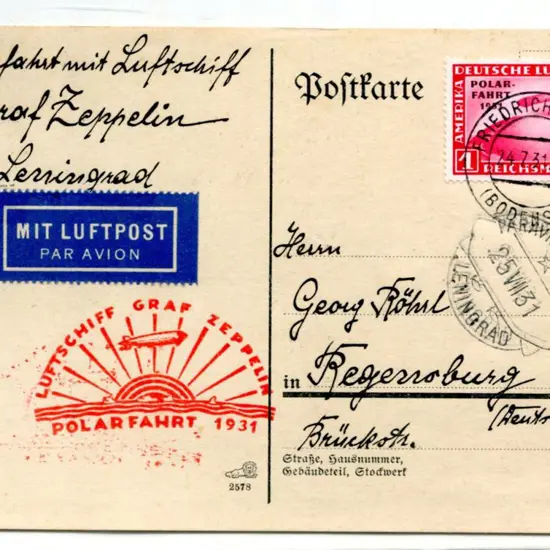 fahrt mit Luftschiff
raf Zeppelin
Leningrad
MIT LUFTPOST
PAR AVION
LUFTSCHIFF GRAF ZEPPELIN
POLARFAHRT 1931
2578
Postkarte
DEUTSCHE LU
POLAR-
FAHRT
1931
AMERIKA
1 REICHSM
FRIEDRICH
24.7.31
(BODENS
PAR AV
25 VII 31
LENINGRAD
Herrn
Georg Röhrl
in Regensburg
(Deuts
Brückstr.
Straße, Hausnummer,
Gebäudeteil, Stockwerk